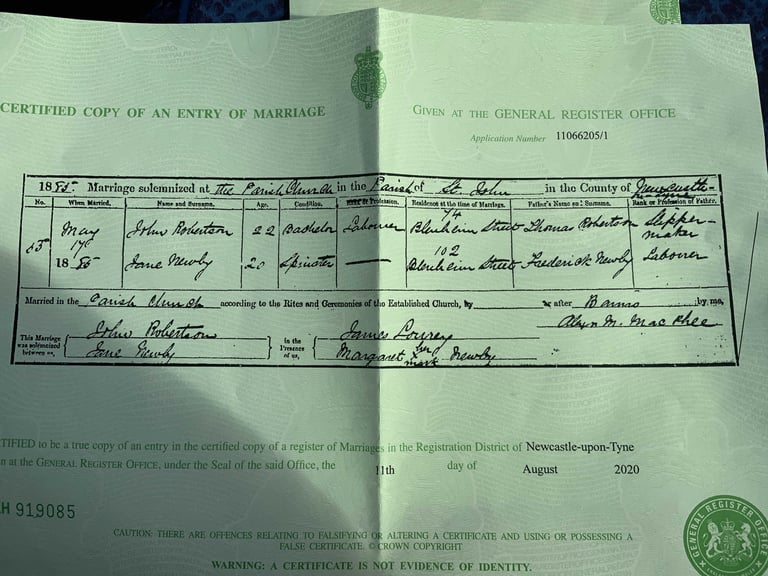 CERTIFIED COPY OF AN ENTRY OF MARRIAGE
GIVEN AT THE GENERAL REGISTER OFFICE
Application Number 11066205/1
1885. Marriage solemnized at the Parish Church in the Parish of St. John in the County of Newcastle-
No. When Married. Name and Surname. Age. Condition. Rank or Profession. Residence at the time of Marriage. Father's Name and Surname. Rank or Profession of Father.
May 17 1885 John Robertson 22 Bachelor Labourer 74 Blenheim Street Thomas Robertson Slipper-maker
Jane Newby 20 Spinster — 102 Blenheim Street Frederick Newby Labourer
Married in the Parish Church according to the Rites and Ceremonies of the Established Church, by or after Banns by me,
Alexn M. MacPhee
This Marriage was solemnized between us, John Robertson
Jane Newby
in the Presence of us, James Lourey
Margaret her x mark Newby
TIFIED to be a true copy of an entry in the certified copy of a register of Marriages in the Registration District of Newcastle-upon-Tyne
n at the GENERAL REGISTER OFFICE, under the Seal of the said Office, the 11th day of August 2020
H 919085
CAUTION: THERE ARE OFFENCES RELATING TO FALSIFYING OR ALTERING A CERTIFICATE AND USING OR POSSESSING A
FALSE CERTIFICATE. © CROWN COPYRIGHT
WARNING: A CERTIFICATE IS NOT EVIDENCE OF IDENTITY.
GENERAL REGISTER OFFICE